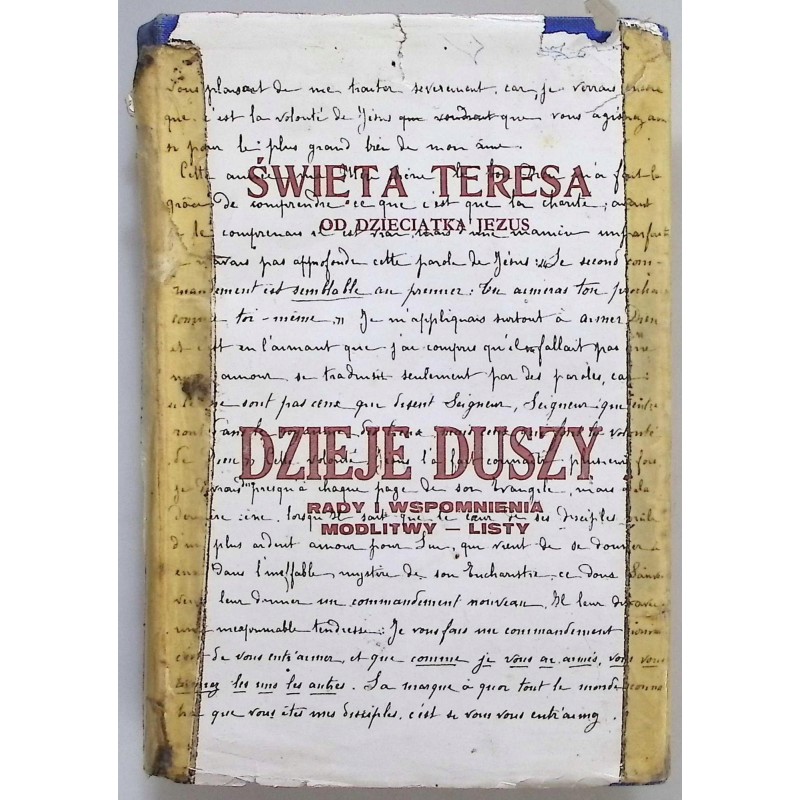 vous plaisant de me traiter severement, car, je verrais encore
que c'est la volonté de Jésus que voudrait que vous agissiez ain
si pour le plus grand bien de mon âme.
Cette année
ŚWIETA TERESA
grâce de comprendre ce que c'est que la charité; avant
OD DZIECIĄTKA JEZUS
je le comprenais il est vrai, mais d'une manière imparfaite
avais pas approfondi cette parole de Jésus: "Le second com-
mandement est semblable au premier: Tu aimeras ton prochain
comme toi-même." Je m'appliquais surtout à aimer Dieu
et c'est en l'aimant que j'ai compris qu'il ne fallait pas que
amour se traduisit seulement par des paroles, car:
ce ne sont pas ceux qui disent Seigneur, Seigneur qui entre
ront dans le royaume des
volonté
DZIEJE DUSZY
de Dieu." Cette volonté, Jésus l'a fait connaître plusieurs fois
je devrais presqu'à chaque page de son Evangile, mais à la
RADY I WSPOMNIENIA
dernière cène, lorsqu'Il sait que le cœur de ses disciples brûle
MODLITWY — LISTY
d'un plus ardent amour pour Lui, qui vient de se donner à
eux dans l'ineffable mystère de son Eucharistie, ce doux Sau
veur leur donner un commandement nouveau. Il leur dit avec
une inexprimable tendresse: Je vous fais un commandement
c'est de vous entr'aimer, et que comme je vous ai aimés, vous vous
aimiez les uns les autres. La marque à quoi tout le monde connai
tra que vous êtes mes disciples, c'est si vous vous entr'aimez